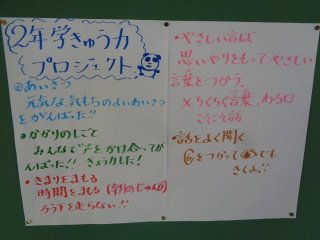 2年学きゅう力
プロジェクト
◎あいさつ
元気な、気もちのよいあいさつ
をがんばった!!
・かかりのしごと
みんなで声をかけ合ってが
んばった!! きょう力した!
・きまりをまもる
時間をまもる
ろう下を走らない!!
・やさしい言ば
思いやりをもって、やさしい
言葉をつかう。
×ちくちく言葉、わる口
こそこそ話
・話をよく聞く
をつかって
きくよ!!